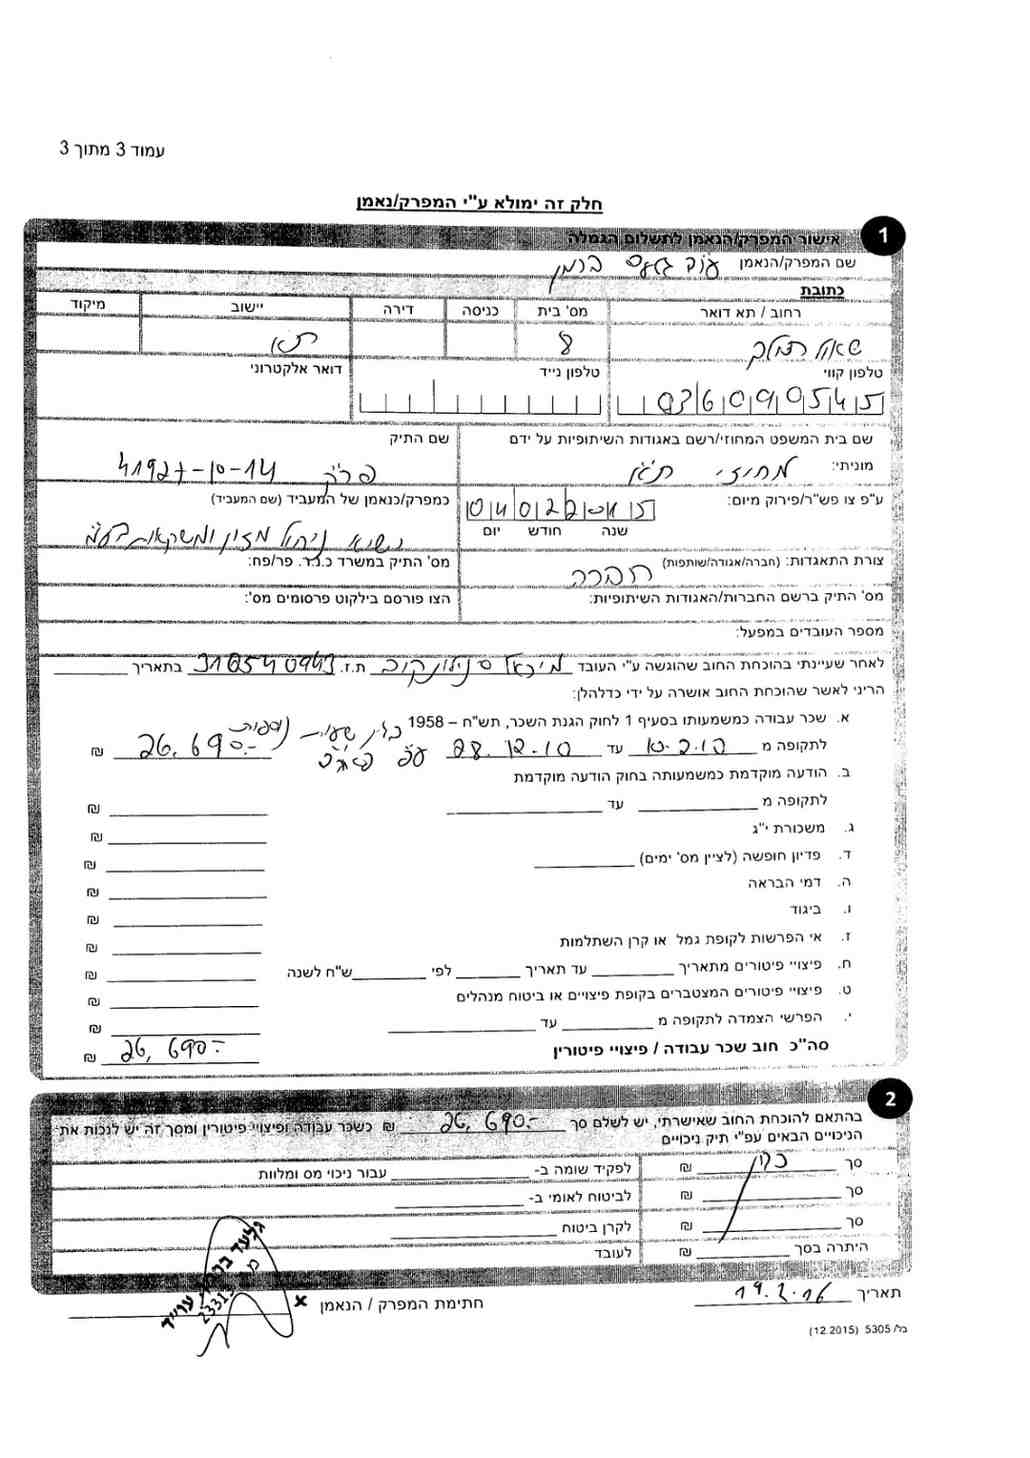 עמוד 3 מתוך 3
חלק זה ימולא ע"י המפרק/נאמן
1 אישור המפרק/הנאמן לתשלום הגמלה
שם המפרק/הנאמן עו"ד גלעד ברמן
כתובת
רחוב / תא דואר מס' בית כניסה דירה יישוב מיקוד
שאול המלך 8 ת"א
טלפון קווי טלפון נייד דואר אלקטרוני
036090545
שם בית המשפט המחוזי/רשם באגודות השיתופיות על ידם שם התיק
מוניתי: מחוזי ת"א פר"ק 41927-10-14
ע"פ צו פש"ר/פירוק מיום: 04022015 כמפרק/כנאמן של המעביד (שם המעביד)
שנה חודש יום
ניהול מזון ומשקאות בע"מ
צורת התאגדות: (חברה/אגודה/שותפות) חברה מס' התיק במשרד כ.נ.ר. פר/פח:
מס' התיק ברשם החברות/האגודות השיתופיות: הצו פורסם בילקוט פרסומים מס':
מספר העובדים במפעל:
לאחר שעיינתי בהוכחת החוב שהוגשה ע"י העובד מיכאל ת.ז. 318540943 בתאריך
הריני לאשר שהוכחת החוב אושרה על ידי כדלהלן:
א. שכר עבודה כמשמעותו בסעיף 1 לחוק הגנת השכר, תש"ח – 1958 בגין שעות נוספות
לתקופה מ 10.2.10 עד 28.12.10 עפ"י פסה"ד 26,690.- ₪
ב. הודעה מוקדמת כמשמעותה בחוק הודעה מוקדמת
לתקופה מ עד ₪
ג. משכורת י"ג ₪
ד. פדיון חופשה (לציין מס' ימים) ₪
ה. דמי הבראה ₪
ו. ביגוד ₪
ז. אי הפרשות לקופת גמל או קרן השתלמות ₪
ח. פיצויי פיטורים מתאריך עד תאריך לפי ש"ח לשנה ₪
ט. פיצויי פיטורים המצטברים בקופת פיצויים או ביטוח מנהלים ₪
י. הפרשי הצמדה לתקופה מ עד ₪
סה"כ חוב שכר עבודה / פיצויי פיטורין 26,690.- ₪
2
בהתאם להוכחת החוב שאישרתי, יש לשלם סך 26,690.- ₪ כשכר עבודה ופיצויי פיטורין ומסך זה יש לנכות את
הניכויים הבאים עפ"י תיק ניכויים
סך כחוק ₪ לפקיד שומה ב- עבור ניכוי מס ומלוות
סך ₪ לביטוח לאומי ב-
סך ₪ לקרן ביטוח
היתרה בסך ₪ לעובד
תאריך 19.2.16 חתימת המפרק / הנאמן x
בל/ 5305 (12.2015)